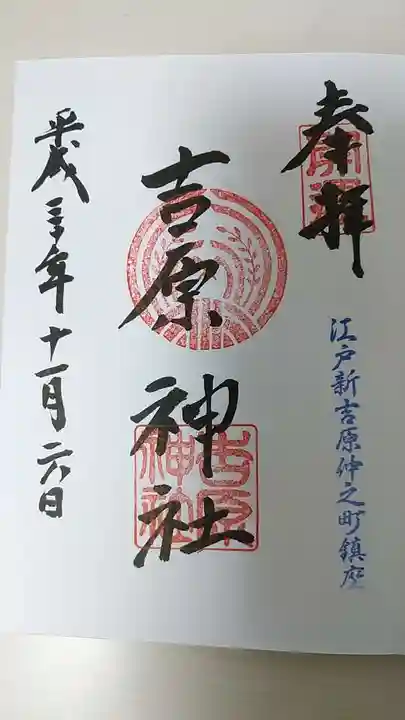 奉拝
江戸新吉原仲之町鎮座
吉原神社
吉原神社
平成三十年十一月六日